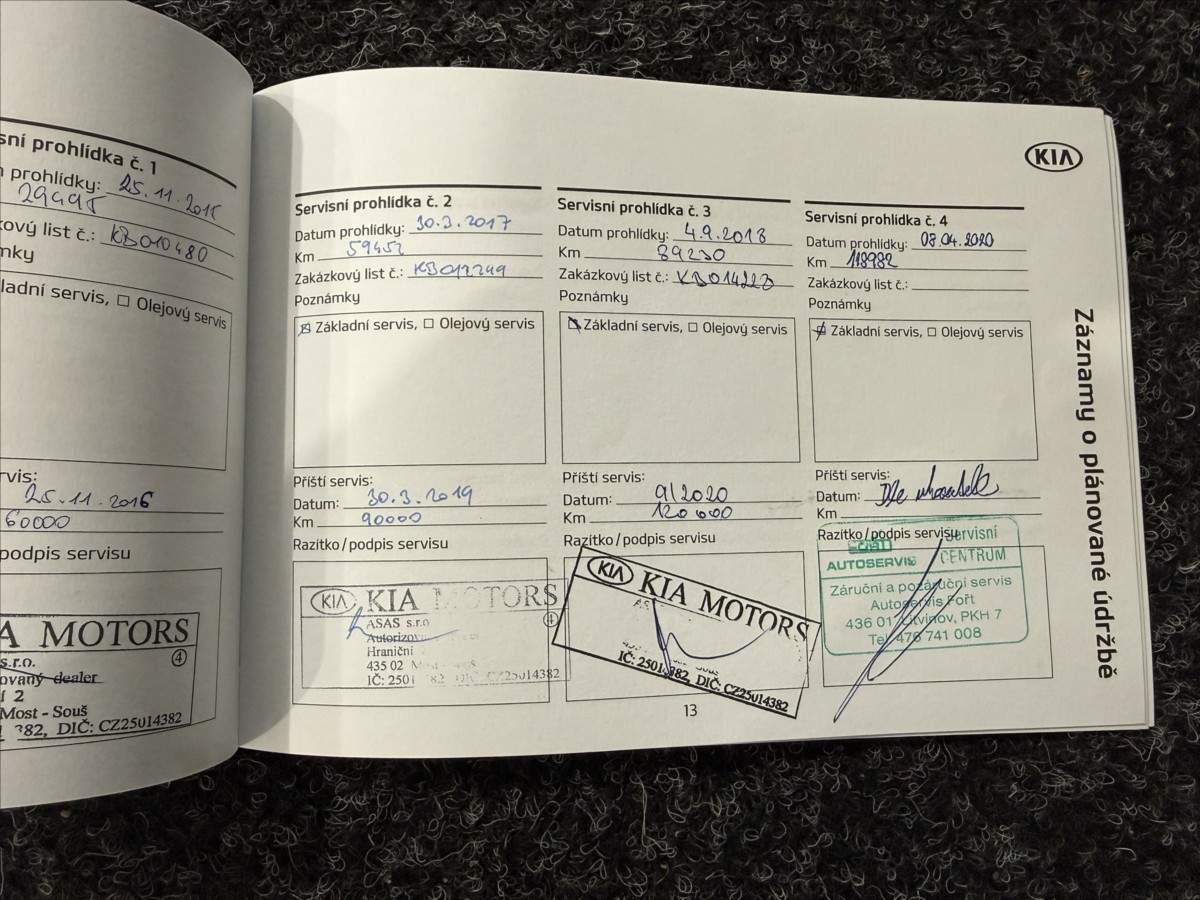 sní prohlídka č. 1
prohlídky: 25.11.2015
29495
ový list č.: KB010480
mky
ladní servis, □ Olejový servis
rvis:
25.11.2016
60000
podpis servisu
A MOTORS
s.r.o. ④
ovaný dealer
í 2
Most - Souš
382, DIČ: CZ25014382
Servisní prohlídka č. 2
Datum prohlídky: 30.3.2017
Km 59452
Zakázkový list č.: KB012249
Poznámky
☒ Základní servis, □ Olejový servis
Příští servis:
Datum: 30.3.2019
Km 90000
Razítko/podpis servisu
KIA KIA MOTORS
ASAS s.r.o. ④
Autorizov
Hraniční
435 02 M
IČ: 2501 382 DIČ: CZ25014382
Servisní prohlídka č. 3
Datum prohlídky: 4.9.2018
Km 89230
Zakázkový list č.: KB014223
Poznámky
☒ Základní servis, □ Olejový servis
Příští servis:
Datum: 9/2020
Km 120000
Razítko/podpis servisu
KIA KIA MOTORS
AS
IČ: 2501 382, DIČ: CZ25014382
13
KIA
Servisní prohlídka č. 4
Datum prohlídky: 08.04.2020
Km 118982
Zakázkový list č.:
Poznámky
☒ Základní servis, □ Olejový servis
Příští servis:
Datum: Dle ukazatele
Km
Razítko/podpis servisu
Servisní
AUTOSERVIS CENTRUM
Záruční a pozáruční servis
Autoservis Fořt
436 01 Litvínov, PKH 7
Tel. 476 741 008
Záznamy o plánované údržbě